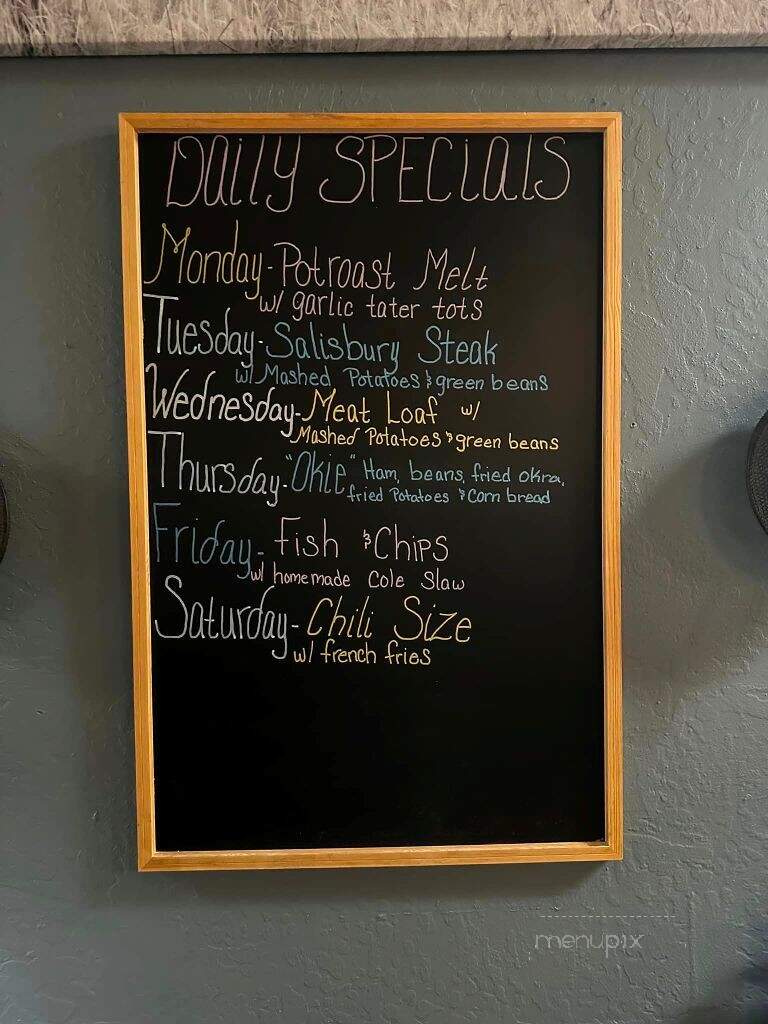 DAILY SPECIALS
Monday - Potroast Melt
w/ garlic tater tots
Tuesday - Salisbury Steak
w/ Mashed Potatoes & green beans
Wednesday - Meat Loaf w/
Mashed Potatoes & green beans
Thursday - "Okie" Ham, beans, fried okra,
fried Potatoes & Corn bread
Friday - Fish & Chips
w/ homemade Cole Slaw
Saturday - Chili Size
w/ french fries
menupix